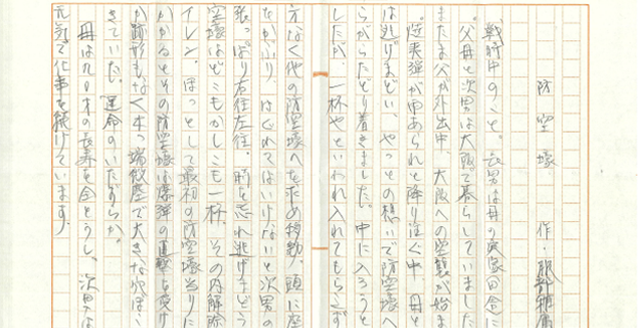 防空壕
作・服部
戦時中のこと。長男は母の実家田舎に
父母と次男は大阪で暮らしていました
またま父が外出中、大阪への空襲が始ま
焼夷弾が雨あられと降り注ぐ中、母と
は逃げまどい、やっとの想いで防空壕へ
らがらたどり着きました。中に入ろうと
したが、一杯やといわれ入れてもらえず
方なく他の防空壕へを求め移動、頭に座
なかぶり、はぐれてはいけないと次男の
張っぱり右往左往。時を忘れ逃げまどう
空壕はどこもかしこも一杯、その内解除
イレン。ほっとして最初の防空壕当りに
かかるとその防空壕は爆弾の直撃を受け
か跡形もなく木っ端微塵で大きな穴ぼこ
きていた。運命のいたずらか。
母は九〇才の長寿を全とうし、次男は
元気で仕事を続けています。